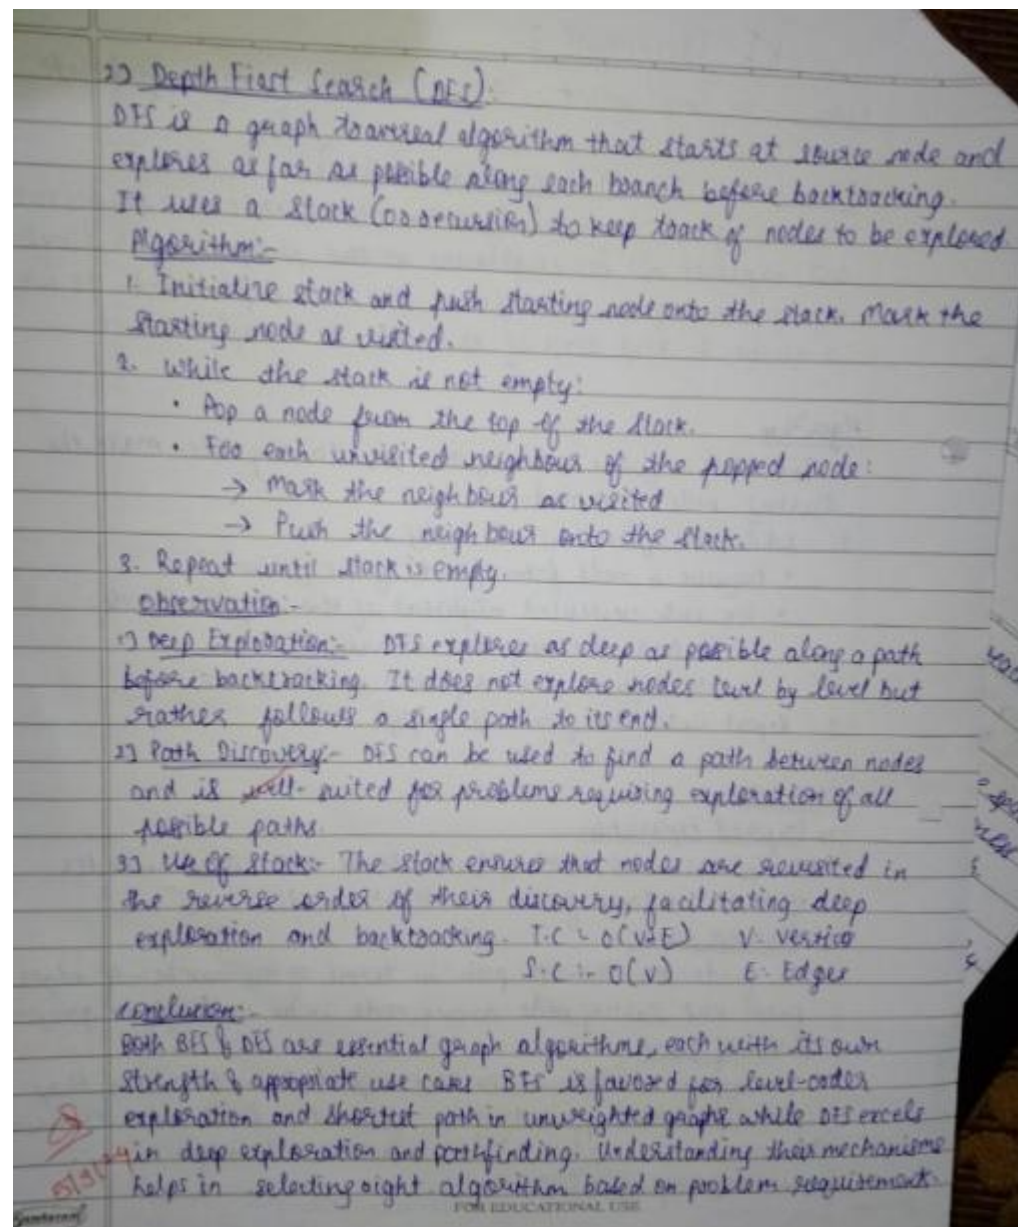 2) Depth First Search (DFS):
DFS is a graph traversal algorithm that starts at source node and
explores as far as possible along each branch before backtracking.
It uses a stack (or recursion) to keep track of nodes to be explored
Algorithm:-
1. Initialize stack and push starting node onto the stack. Mark the
starting node as visited.
2. While the stack is not empty:
• Pop a node from the top of the stack.
• For each unvisited neighbour of the popped node:
→ Mark the neighbour as visited
→ Push the neighbour onto the stack.
3. Repeat until stack is empty.
Observation:-
1) Deep Exploration:- DFS explores as deep as possible along a path
before backtracking. It does not explore nodes level by level but
rather follows a single path to its end.
2) Path Discovery:- DFS can be used to find a path between nodes
and is well-suited for problems requiring exploration of all
possible paths.
3) Use of Stack:- The stack ensures that nodes are revisited in
the reverse order of their discovery, facilitating deep
exploration and backtracking. T.C :- O(V+E) V- Vertice
S.C :- O(V) E- Edges
Conclusion:-
Both BFS & DFS are essential graph algorithms, each with its own
strength & appropriate use cases BFS is favored for level-order
exploration and shortest path in unweighted graphs while DFS excels
in deep exploration and pathfinding. Understanding their mechanisms
helps in selecting right algorithm based on problem requirement.
FOR EDUCATIONAL USE
Sundaram